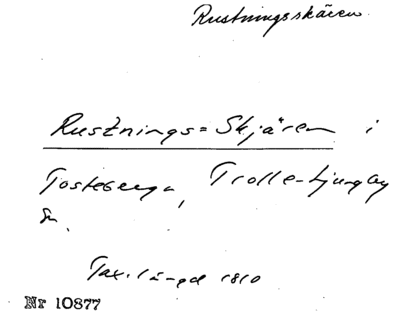 Rustningsskären
Rustnings=Skjären i
Tosteberga, Trolle-Ljungby
sn.
Tax. längd 1810
Nr 10877